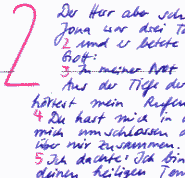 2 Der Herr aber sch
Jona war drei T
2 und er betete
Gott:
3 In meiner Not
Aus der Tiefe der
hörtest mein Rufen
4 Du hast mich in d
mich umschlossen a
über mir zusammen.
5 Ich dachte: Ich bin
deinen heiligen Tem